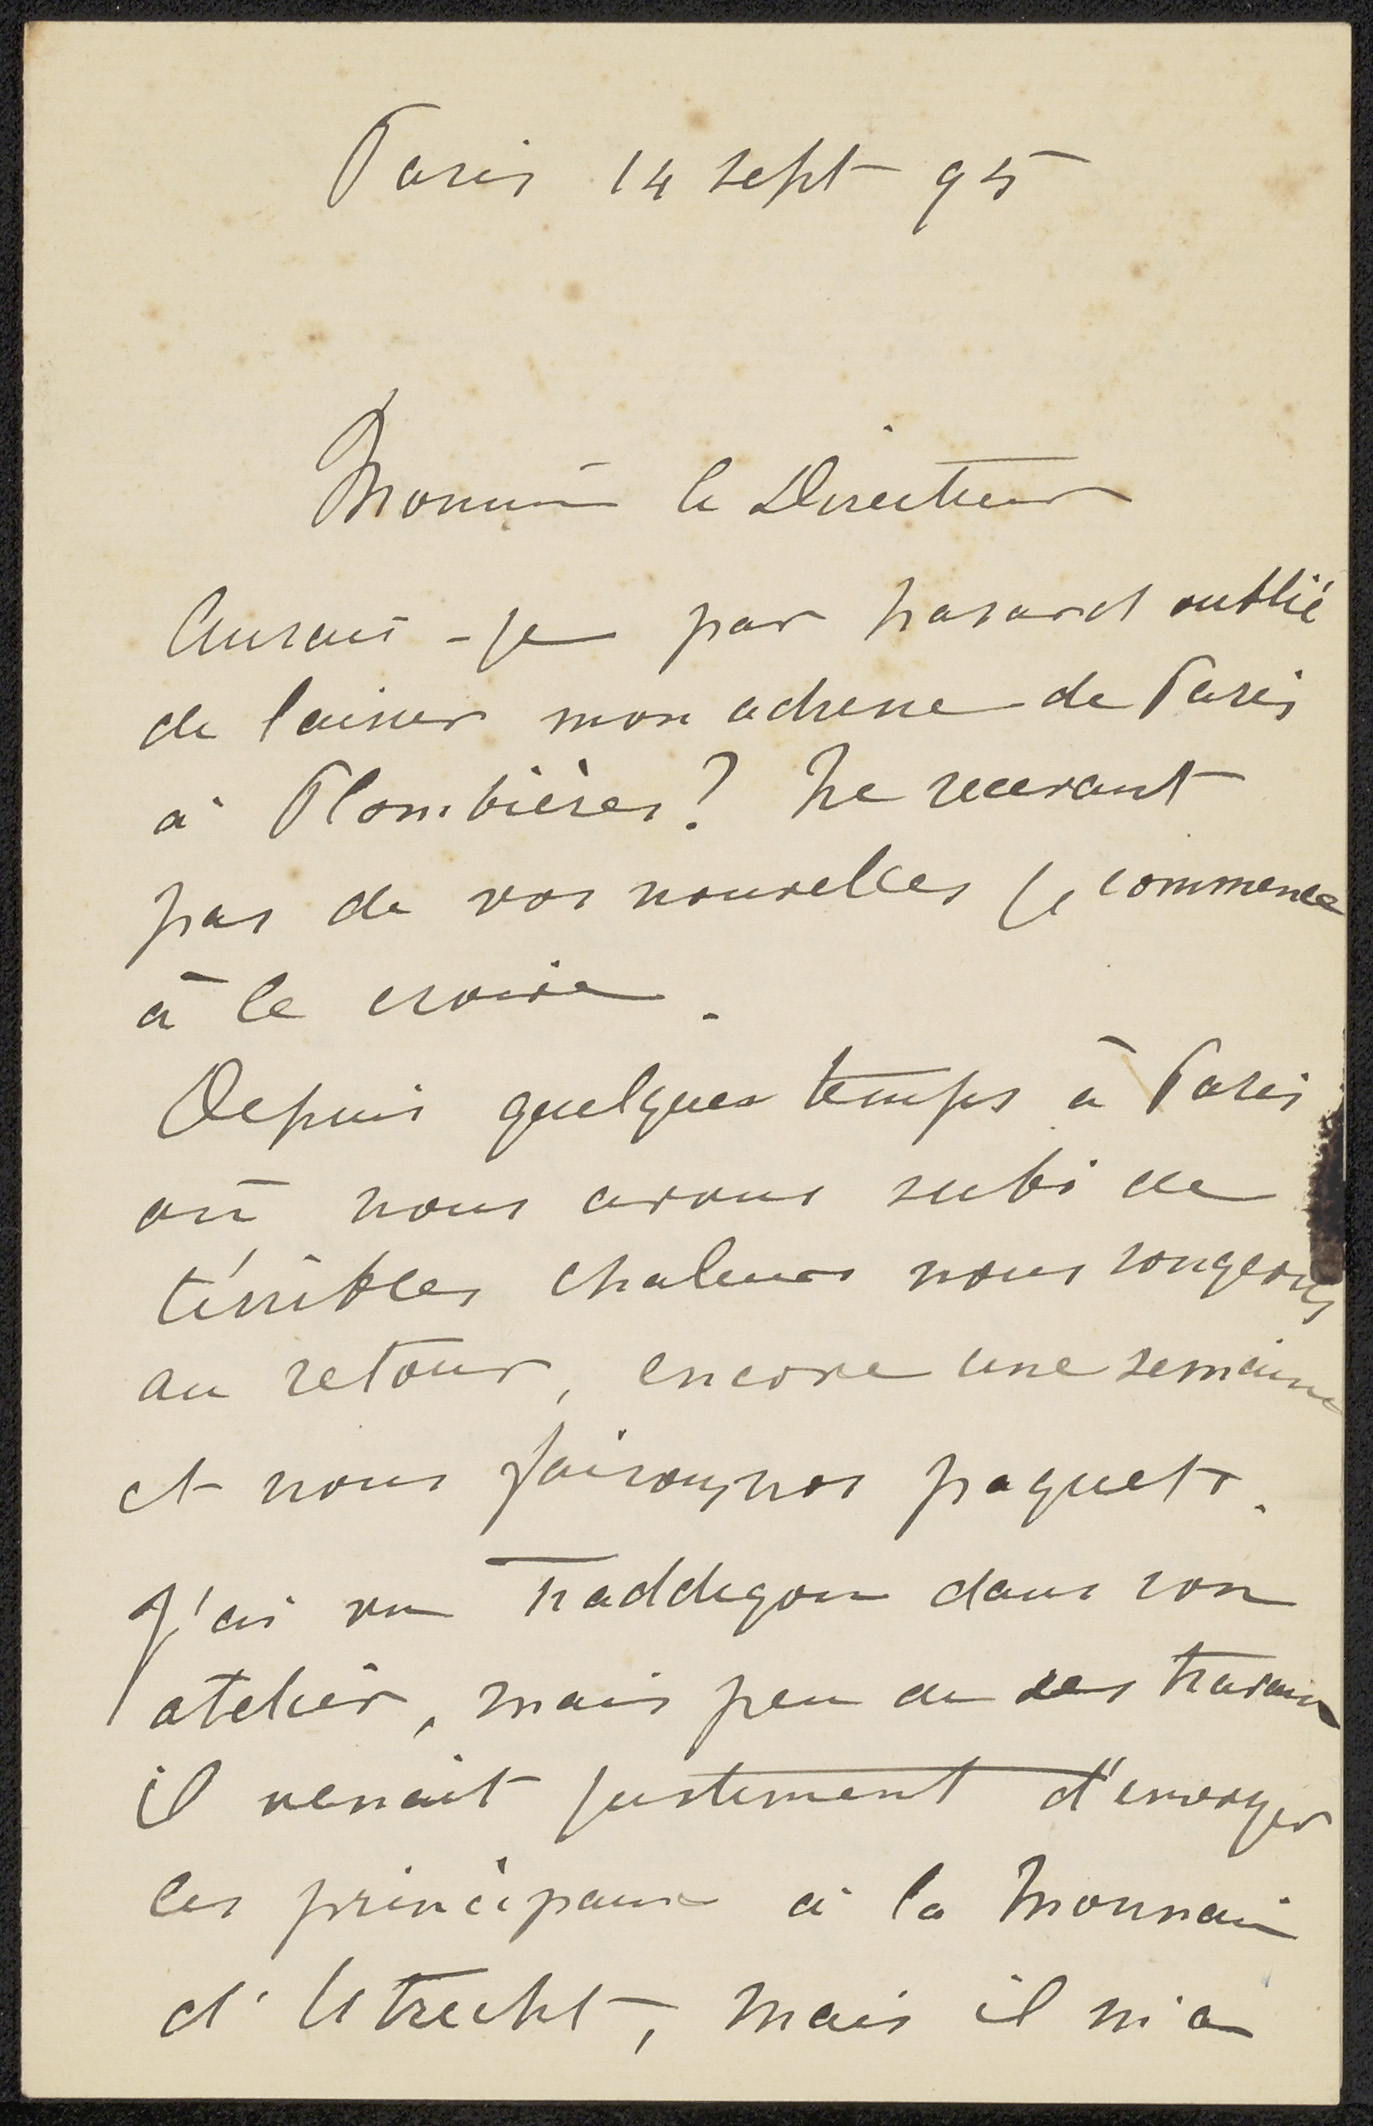 Paris 14 sept 95
Monsieur le Directeur
Aurais-je par hasard oublié
de laisser mon adresse de Paris
à Plombières? Ne recevant
pas de vos nouvelles je commence
à le croire.
Depuis quelques temps à Paris
où nous avons subi de
térribles chaleurs nous songeons
au retour, encore une semaine
et nous faisons nos paquets.
J'ai vu dans son
atelier, mais peu de ses travaux
il venait justement d'envoyer
les principaux à la Monnaie
d'Utrecht, mais il m'a